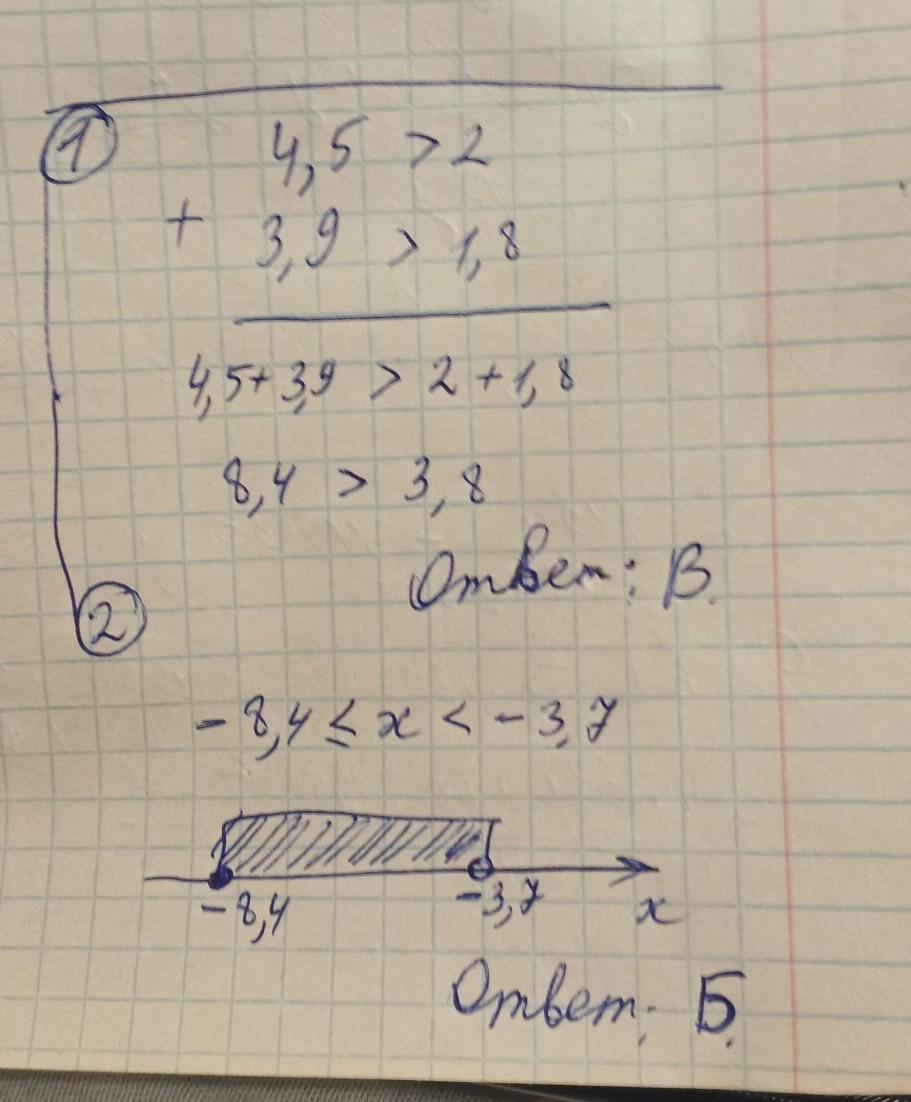 1
4,5 > 2
+
3,9 > 1,8
4,5+3,9 > 2+1,8
8,4 > 3,8
Ответ: В.
2
-8,4 ≤ x < -3,7
-8,4 -3,7 x
Ответ: Б.